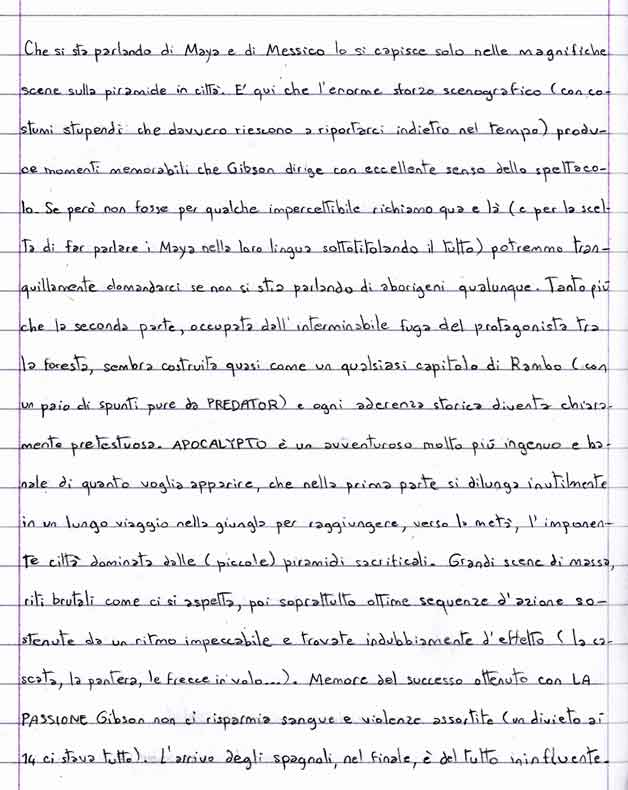 Che si sta parlando di Maya e di Messico lo si capisce solo nelle magnifiche
scene sulla piramide in città. E' qui che l'enorme sforzo scenografico (con co-
stumi stupendi che davvero riescono a riportarci indietro nel tempo) produ-
ce momenti memorabili che Gibson dirige con eccellente senso dello spettaco-
lo. Se però non fosse per qualche impercettibile richiamo qua e là (e per la scel-
ta di far parlare i Maya nella loro lingua sottotitolando il tutto) potremmo tran-
quillamente domandarci se non si stia parlando di aborigeni qualunque. Tanto più
che la seconda parte, occupata dall'interminabile fuga del protagonista tra
la foresta, sembra costruita quasi come un qualsiasi capitolo di Rambo (con
un paio di spunti pure da PREDATOR) e ogni aderenza storica diventa chiara-
mente pretestuosa. APOCALYPTO è un avventuroso molto più ingenuo e ba-
nale di quanto voglia apparire, che nella prima parte si dilunga inutilmente
in un lungo viaggio nella giungla per raggiungere, verso la metà, l'imponen-
te città dominata dalle (piccole) piramidi sacrificali. Grandi scene di massa,
riti brutali come ci si aspetta, poi soprattutto ottime sequenze d'azione so-
stenute da un ritmo impeccabile e trovate indubbiamente d'effetto (la ca-
scata, la pantera, le frecce in volo...). Memore del successo ottenuto con LA
PASSIONE Gibson non ci risparmia sangue e violenze assortite (un divieto ai
14 ci stava tutto). L'arrivo degli spagnoli, nel finale, è del tutto ininfluente.